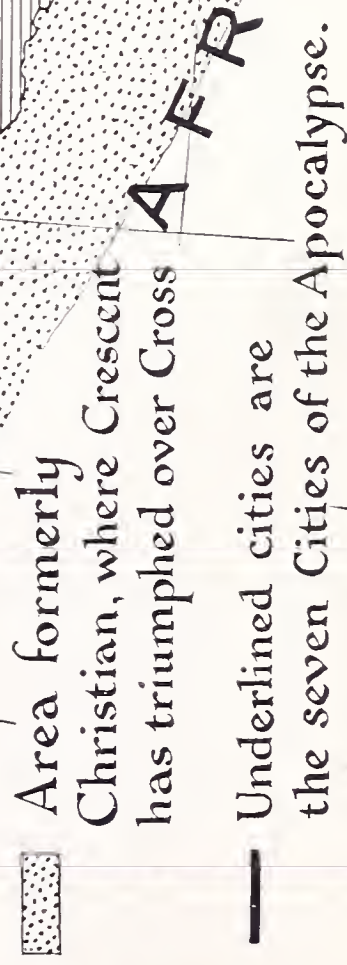 Area formerly
Christian, where Crescent
has triumphed over Cross
Underlined cities are
the seven Cities of the Apocalypse.
A F R